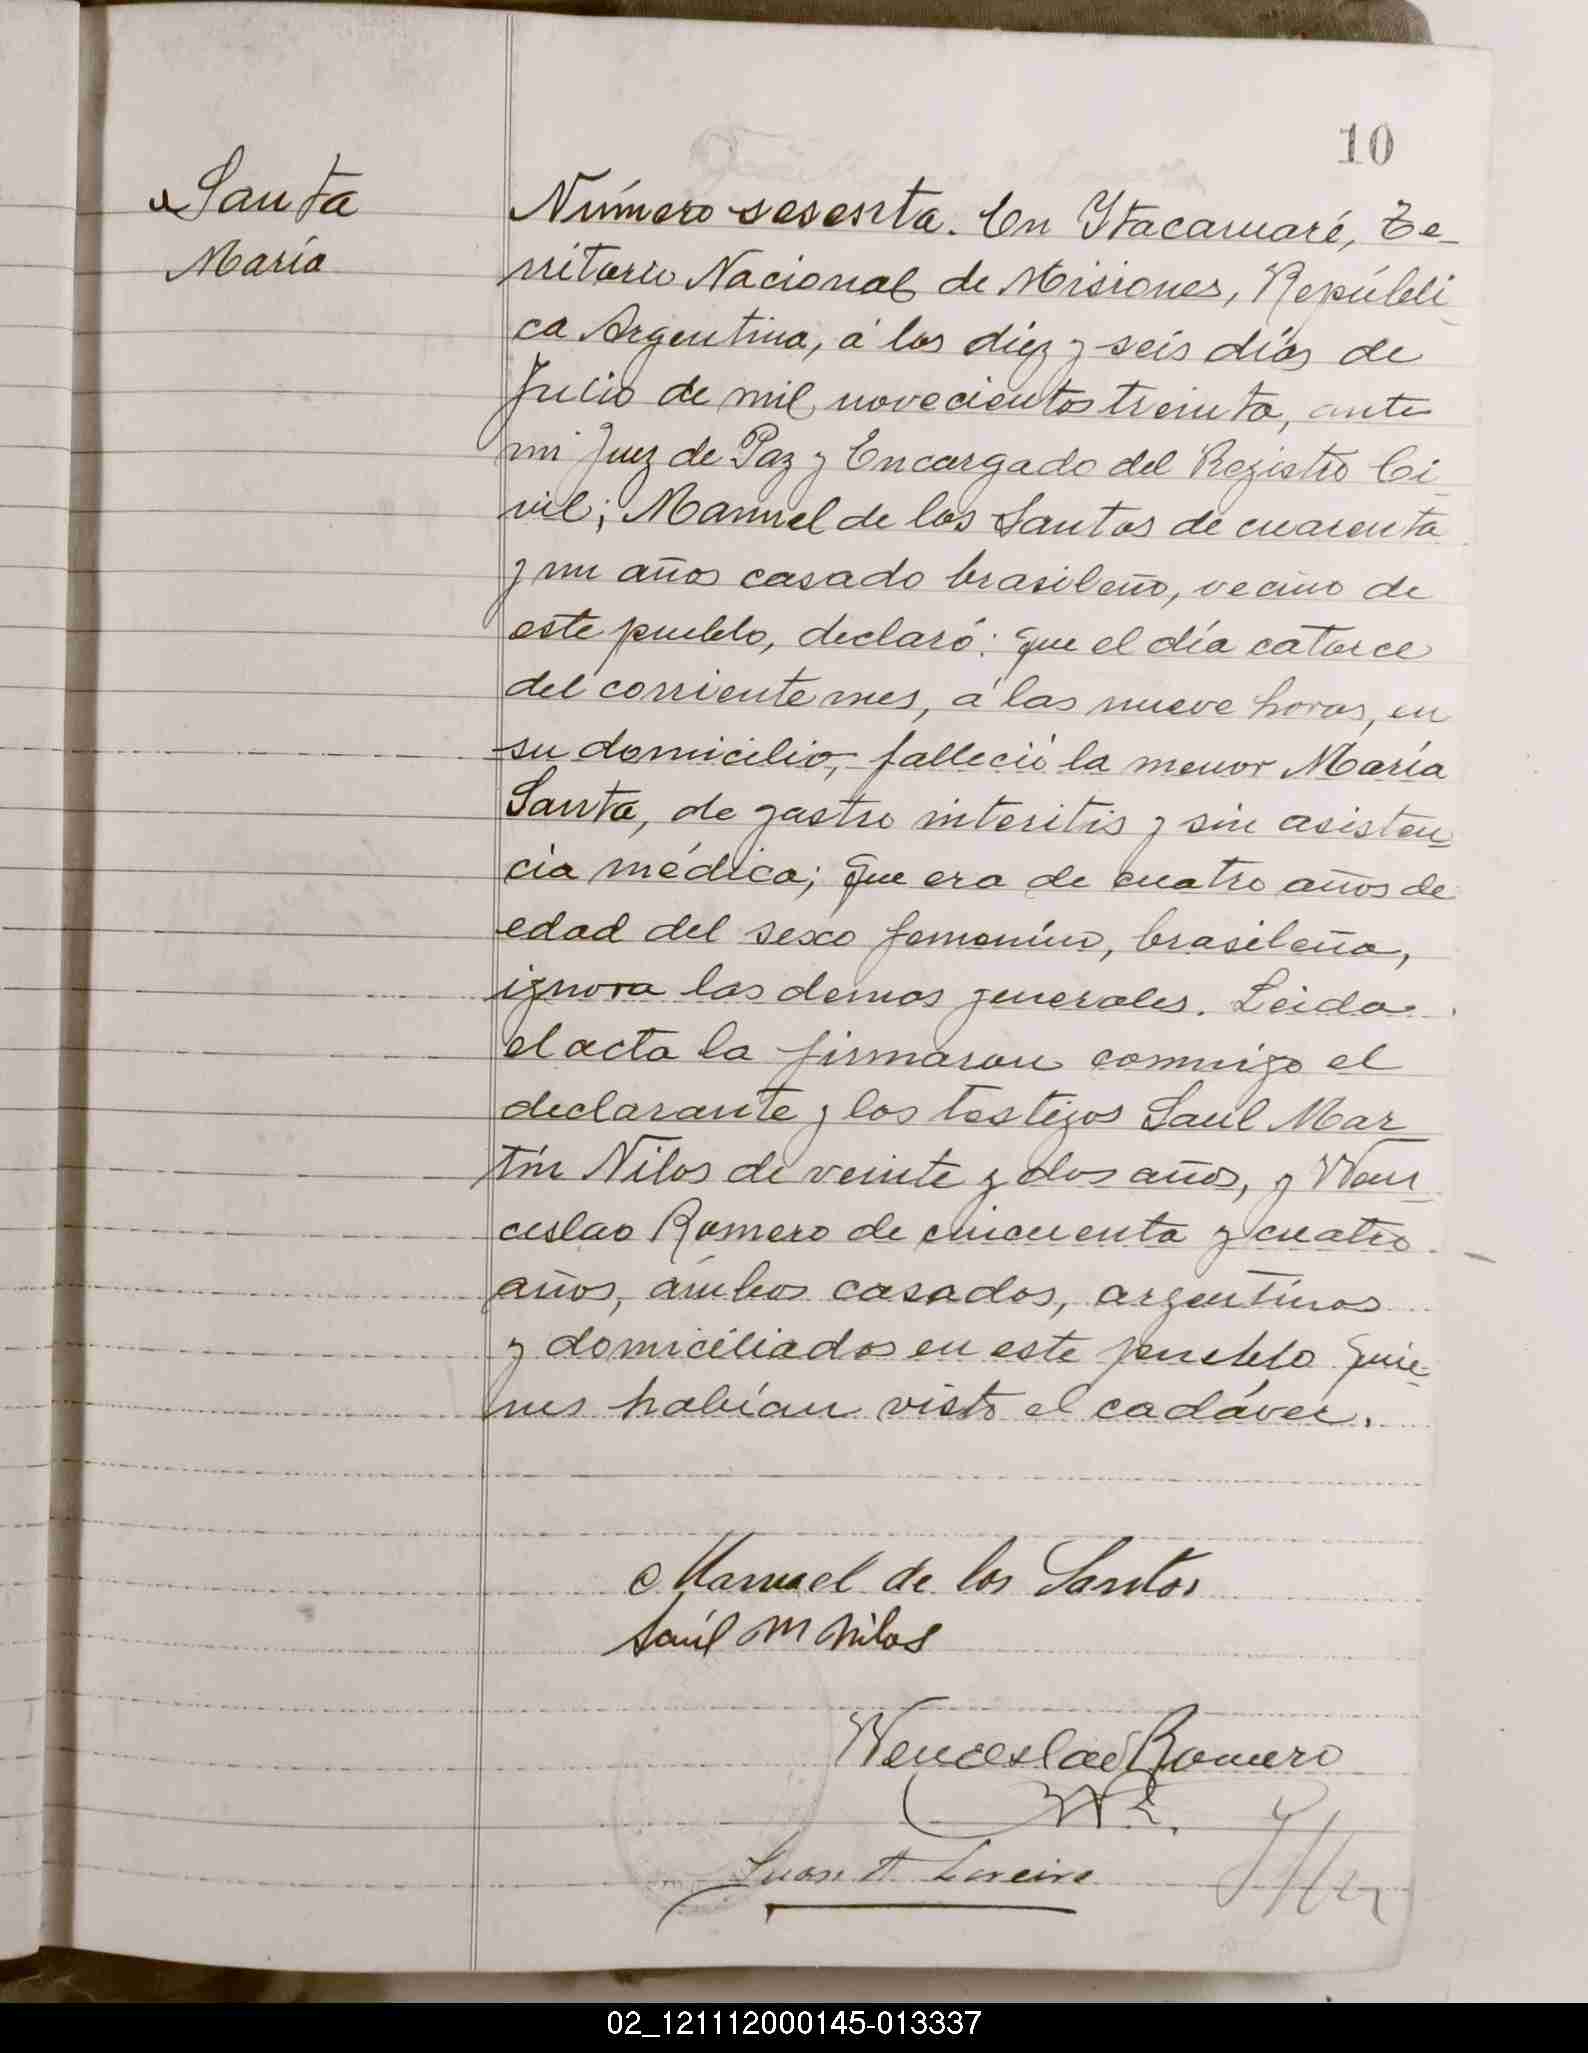 10
Santa
María
Número sesenta. En Itacaruaré, Te-
rritorio Nacional de Misiones, Repúbli
ca Argentina, á los diez y seis días de
Julio de mil novecientos treinta, ante
mi Juez de Paz y Encargado del Registro Ci
vil; Manuel de los Santos de cuarenta
y un años casado brasileño, vecino de
este pueblo, declaró: Que el día catorce
del corriente mes, á las nueve horas, en
su domicilio, falleció la menor María
Santa, de gastro interitis y sin asisten
cia médica; Que era de cuatro años de
edad del sexo femenino, brasileña,
ignora las demas generales. Leida
el acta la firmaron conmigo el
declarante y los testigos Saul Mar
tín Nilos de veinte y dos años, y Wen
ceslao Romero de cincuenta y cuatro
años, ámbos casados, argentinos
y domiciliados en este pueblo Quie
nes habían visto el cadáver.
Manuel de los Santos
Saúl M Nilos
Wenceslao Romero
Juan A
02_121112000145-013337